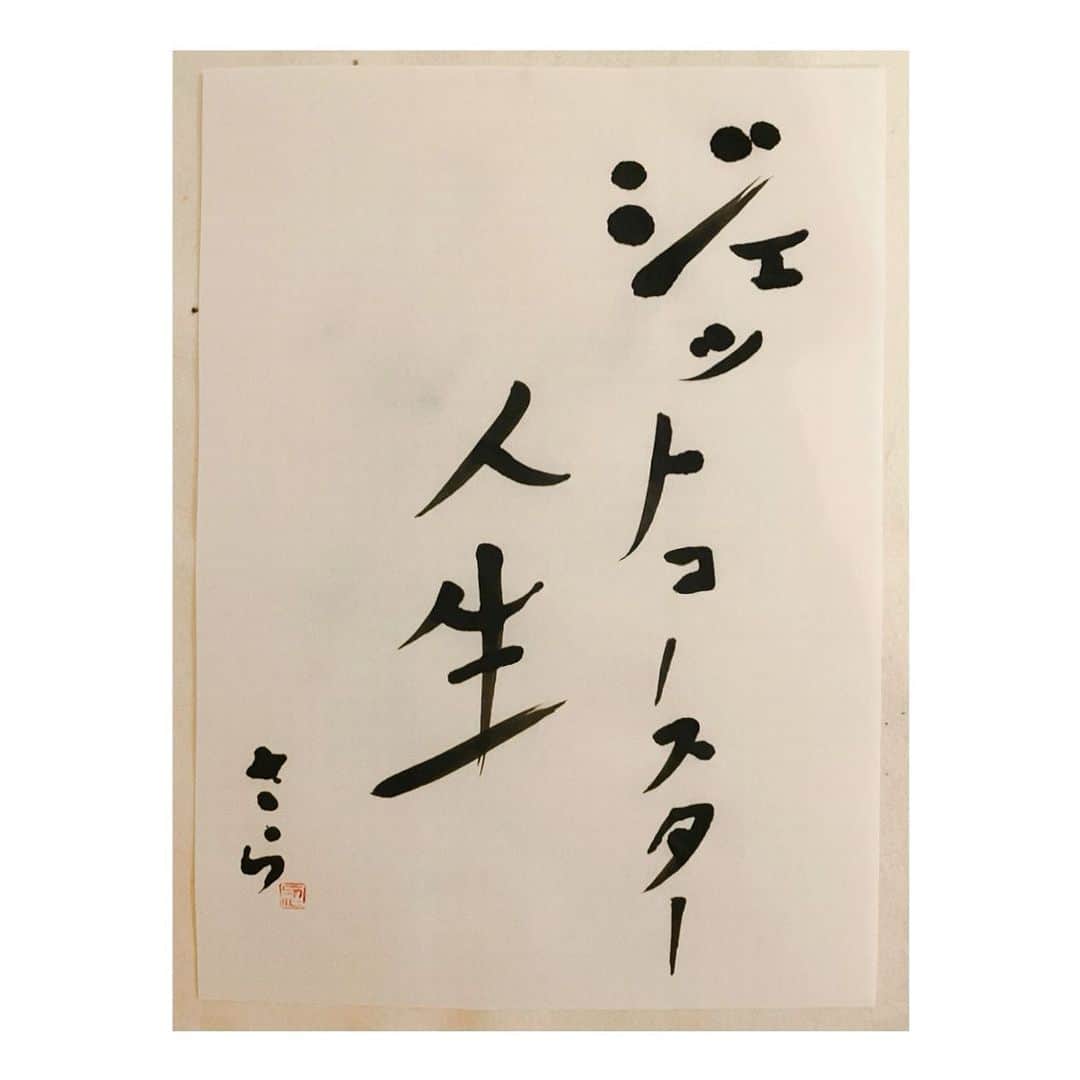 ジェットコースター
人生
さら